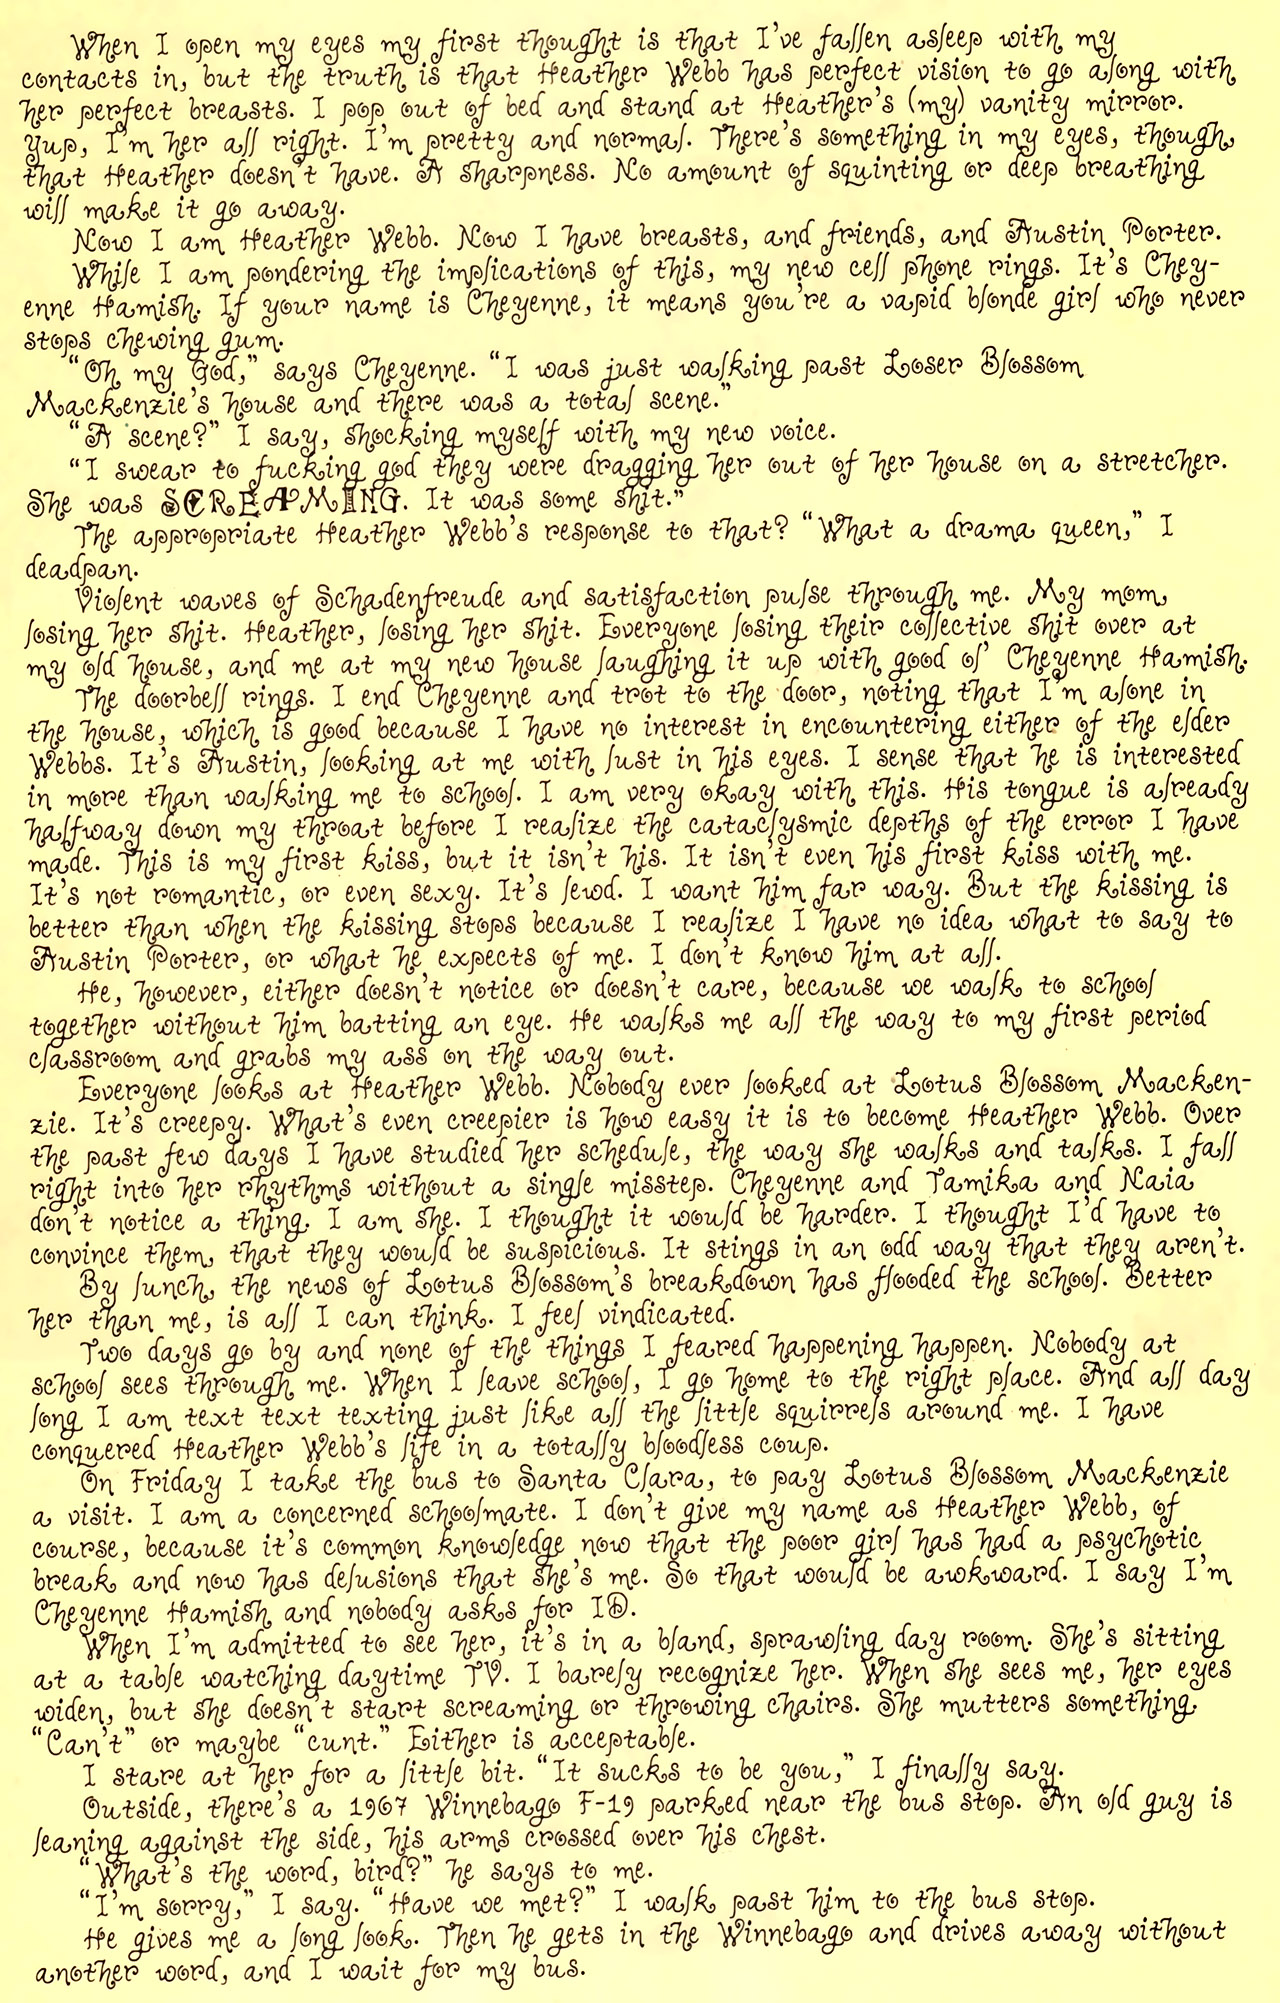 When I open my eyes my first thought is that I've fallen asleep with my
contacts in, but the truth is that Heather Webb has perfect vision to go along with
her perfect breasts. I pop out of bed and stand at Heather's (my) vanity mirror.
Yup, I'm her all right. I'm pretty and normal. There's something in my eyes, though,
that Heather doesn't have. A sharpness. No amount of squinting or deep breathing
will make it go away.
Now I am Heather Webb. Now I have breasts, and friends, and Austin Porter.
While I am pondering the implications of this, my new cell phone rings. It's Chey-
enne Hamish. If your name is Cheyenne, it means you're a vapid blonde girl who never
stops chewing gum.
"Oh my God," says Cheyenne. "I was just walking past Loser Blossom
Mackenzie's house and there was a total scene."
"A scene?" I say, shocking myself with my new voice.
"I swear to fucking god they were dragging her out of her house on a stretcher.
She was SCREAMING. It was some shit."
The appropriate Heather Webb's response to that? "What a drama queen," I
deadpan.
Violent waves of Schadenfreude and satisfaction pulse through me. My mom,
losing her shit. Heather, losing her shit. Everyone losing their collective shit over at
my old house, and me at my new house laughing it up with good ol' Cheyenne Hamish.
The doorbell rings. I end Cheyenne and trot to the door, noting that I'm alone in
the house, which is good because I have no interest in encountering either of the elder
Webbs. It's Austin, looking at me with lust in his eyes. I sense that he is interested
in more than walking me to school. I am very okay with this. His tongue is already
halfway down my throat before I realize the cataclysmic depths of the error I have
made. This is my first kiss, but it isn't his. It isn't even his first kiss with me.
It's not romantic, or even sexy. It's lewd. I want him far way. But the kissing is
better than when the kissing stops because I realize I have no idea what to say to
Austin Porter, or what he expects of me. I don't know him at all.
He, however, either doesn't notice or doesn't care, because we walk to school
together without him batting an eye. He walks me all the way to my first period
classroom and grabs my ass on the way out.
Everyone looks at Heather Webb. Nobody ever looked at Lotus Blossom Macken-
zie. It's creepy. What's even creepier is how easy it is to become Heather Webb. Over
the past few days I have studied her schedule, the way she walks and talks. I fall
right into her rhythms without a single misstep. Cheyenne and Tamika and Naia
don't notice a thing. I am she. I thought it would be harder. I thought I'd have to
convince them, that they would be suspicious. It stings in an odd way that they aren't.
By lunch, the news of Lotus Blossom's breakdown has flooded the school. Better
her than me, is all I can think. I feel vindicated.
Two days go by and none of the things I feared happening happen. Nobody at
school sees through me. When I leave school, I go home to the right place. And all day
long I am text text texting just like all the little squirrels around me. I have
conquered Heather Webb's life in a totally bloodless coup.
On Friday I take the bus to Santa Clara, to pay Lotus Blossom Mackenzie
a visit. I am a concerned schoolmate. I don't give my name as Heather Webb, of
course, because it's common knowledge now that the poor girl has had a psychotic
break and now has delusions that she's me. So that would be awkward. I say I'm
Cheyenne Hamish and nobody asks for ID.
When I'm admitted to see her, it's in a bland, sprawling day room. She's sitting
at a table watching daytime TV. I barely recognize her. When she sees me, her eyes
widen, but she doesn't start screaming or throwing chairs. She mutters something.
"Can't" or maybe "cunt." Either is acceptable.
I stare at her for a little bit. "It sucks to be you," I finally say.
Outside, there's a 1967 Winnebago F-19 parked near the bus stop. An old guy is
leaning against the side, his arms crossed over his chest.
"What's the word, bird?" he says to me.
"I'm sorry," I say. "Have we met?" I walk past him to the bus stop.
He gives me a long look. Then he gets in the Winnebago and drives away without
another word, and I wait for my bus.